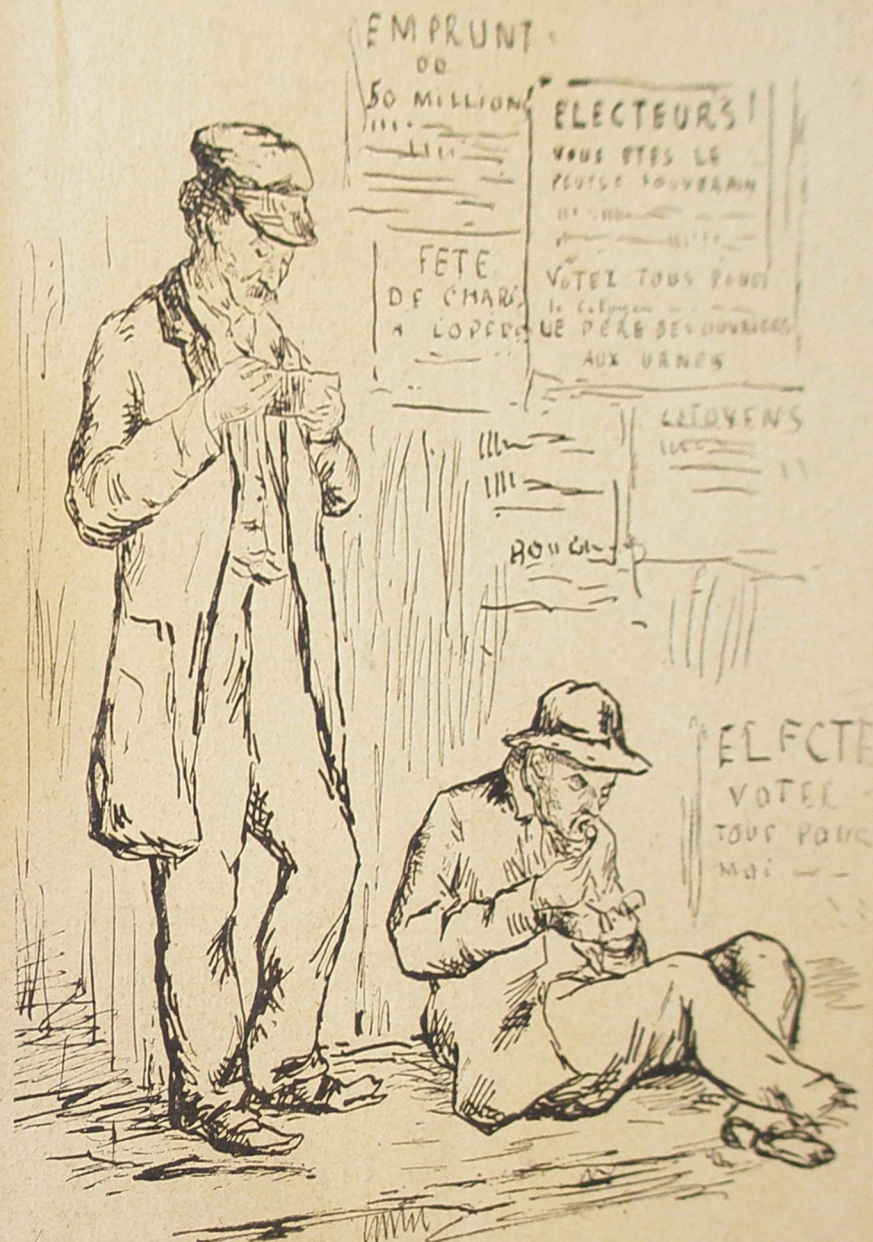 EMPRUNT
DO
50 MILLIONS
ELECTEURS!
VOUS ETES LE
PEUPLE SOUVERAIN
VOTEZ TOUS POUR
le Citoyen
LE PÈRE DES OUVRIERS
AUX URNES
FETE
DE CHARI
A L'OPERA
CITOYENS
ELECTE
VOTEZ
TOUS POUR
MOI